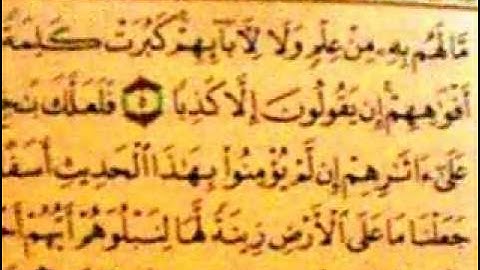 مَّا لَهُم بِهِۦ مِنْ عِلْمٍ وَلَا لِأٓبَآئِهِمْ كَبُرَتْ كَلِمَةً
أَفْوَٰهِهِمْ إِن يَقُولُونَ إِلَّا كَذِبًا ٥ فَلَعَلَّكَ
عَلَىٰٓ ءَاثَٰرِهِمْ إِن لَّمْ يُؤْمِنُوا۟ بِهَٰذَا ٱلْحَدِيثِ أَسَفًا
جَعَلْنَا مَا عَلَى ٱلْأَرْضِ زِينَةً لَّهَا لِنَبْلُوَهُمْ أَيُّهُمْ